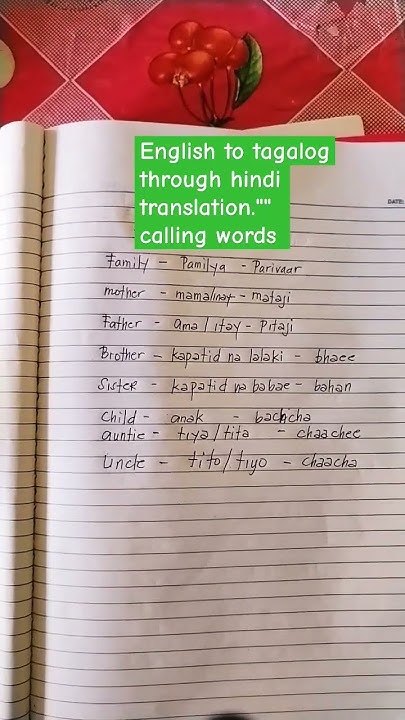 English to tagalog
through hindi
translation.""
calling words
DATE:
Family - Pamilya - Parivaar
mother - mama/inay - mataji
Father - ama/itay - Pitaji
Brother - kapatid na lalaki - bhaee
Sister - kapatid na babae - bahan
Child - anak - bachcha
auntie - tiya/tita - chaachee
Uncle - tito/tiyo - chaacha